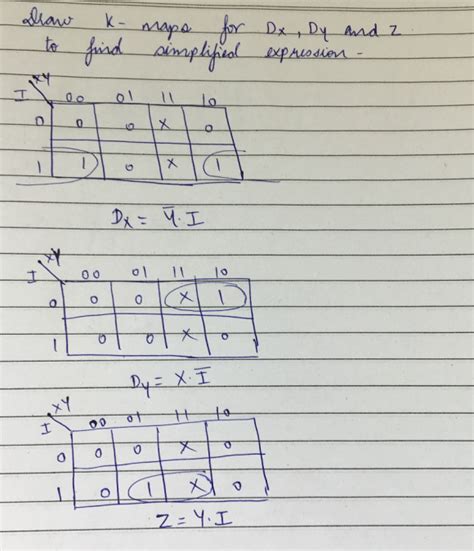 Draw K-maps for Dx, Dy and Z
to find simplified expression -
XY
I 00 01 11 10
0 0 0 X 0
1 1 0 X 1
Dx = Y̅.I
XY
I 00 01 11 10
0 0 0 X 1
1 0 0 X 0
Dy = X.I̅
XY
I 00 01 11 10
0 0 0 X 0
1 0 1 X 0
Z = Y.I